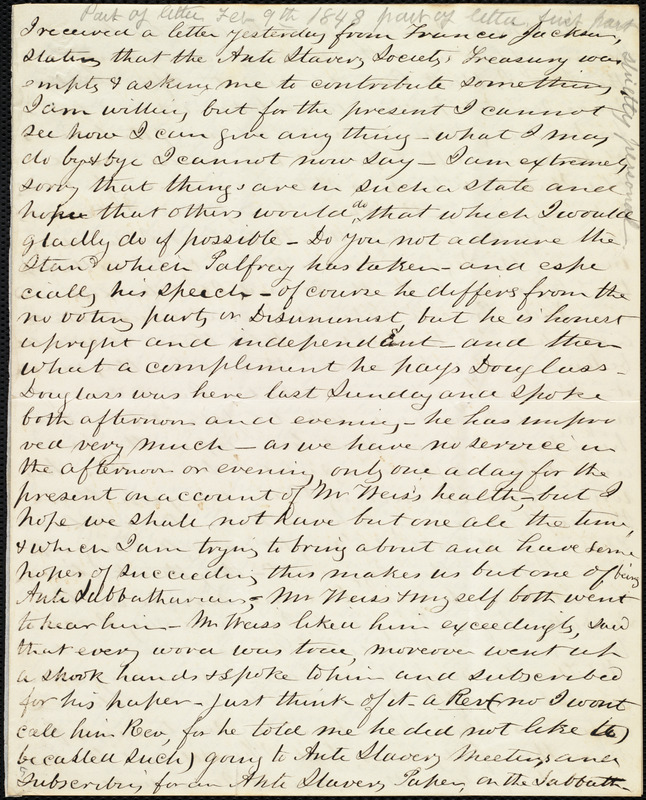 Part of letter Feb 9th 1848 part of letter first part
strictly personal
I received a letter yesterday from Francis Jackson,
stating that the Anti Slavery Society's Treasury was
empty & asking me to contribute something
I am willing but for the present I cannot
see how I can give any thing - what I may
do by & bye I cannot now say - I am extremely
sorry that things are in such a state and
hope that others would do that which I would
gladly do if possible - Do you not admire the
Stand which Palfray has taken - and espe
cially his speech - of course he differs from the
no voting party or Disunionist but he is honest
upright and independent - and then
what a compliment he pays Douglass -
Douglass was here last Sunday and spoke
both afternoon and evening - he has impro
ved very much - as we have no service in
the afternoon or evening only one a day for the
present on account of Mr Weiss's health, - but I
hope we shall not have but one all the time,
& which I am trying to bring about and have some
hopes of succeeding this makes us but one of being
Anti Sabbatharians, - Mr Weiss & myself both went
to hear him - Mr Weiss liked him exceedingly, said
that every word was true, moreover went up
a shook hands & spoke to him and subscribed
for his paper - just think of it - a Rev (no I wont
call him Rev, for he told me he did not like to
be called such) going to Anti Slavery Meetings and
Subscribing for an Anti Slavery Paper, on the Sabbath -